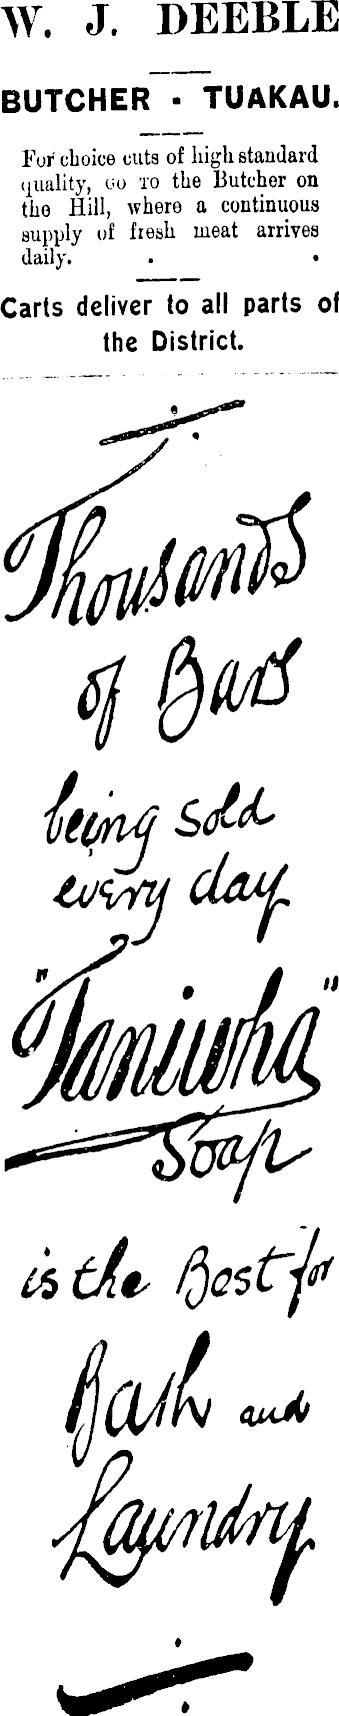 W. J. DEEBLE
BUTCHER - TUAKAU.
For choice cuts of high standard
quality, GO TO the Butcher on
the Hill, where a continuous
supply of fresh meat arrives
daily.
Carts deliver to all parts of
the District.
Thousands
of Bars
being sold
every day
"Taniwha"
Soap
is the Best for
Bath and
Laundry